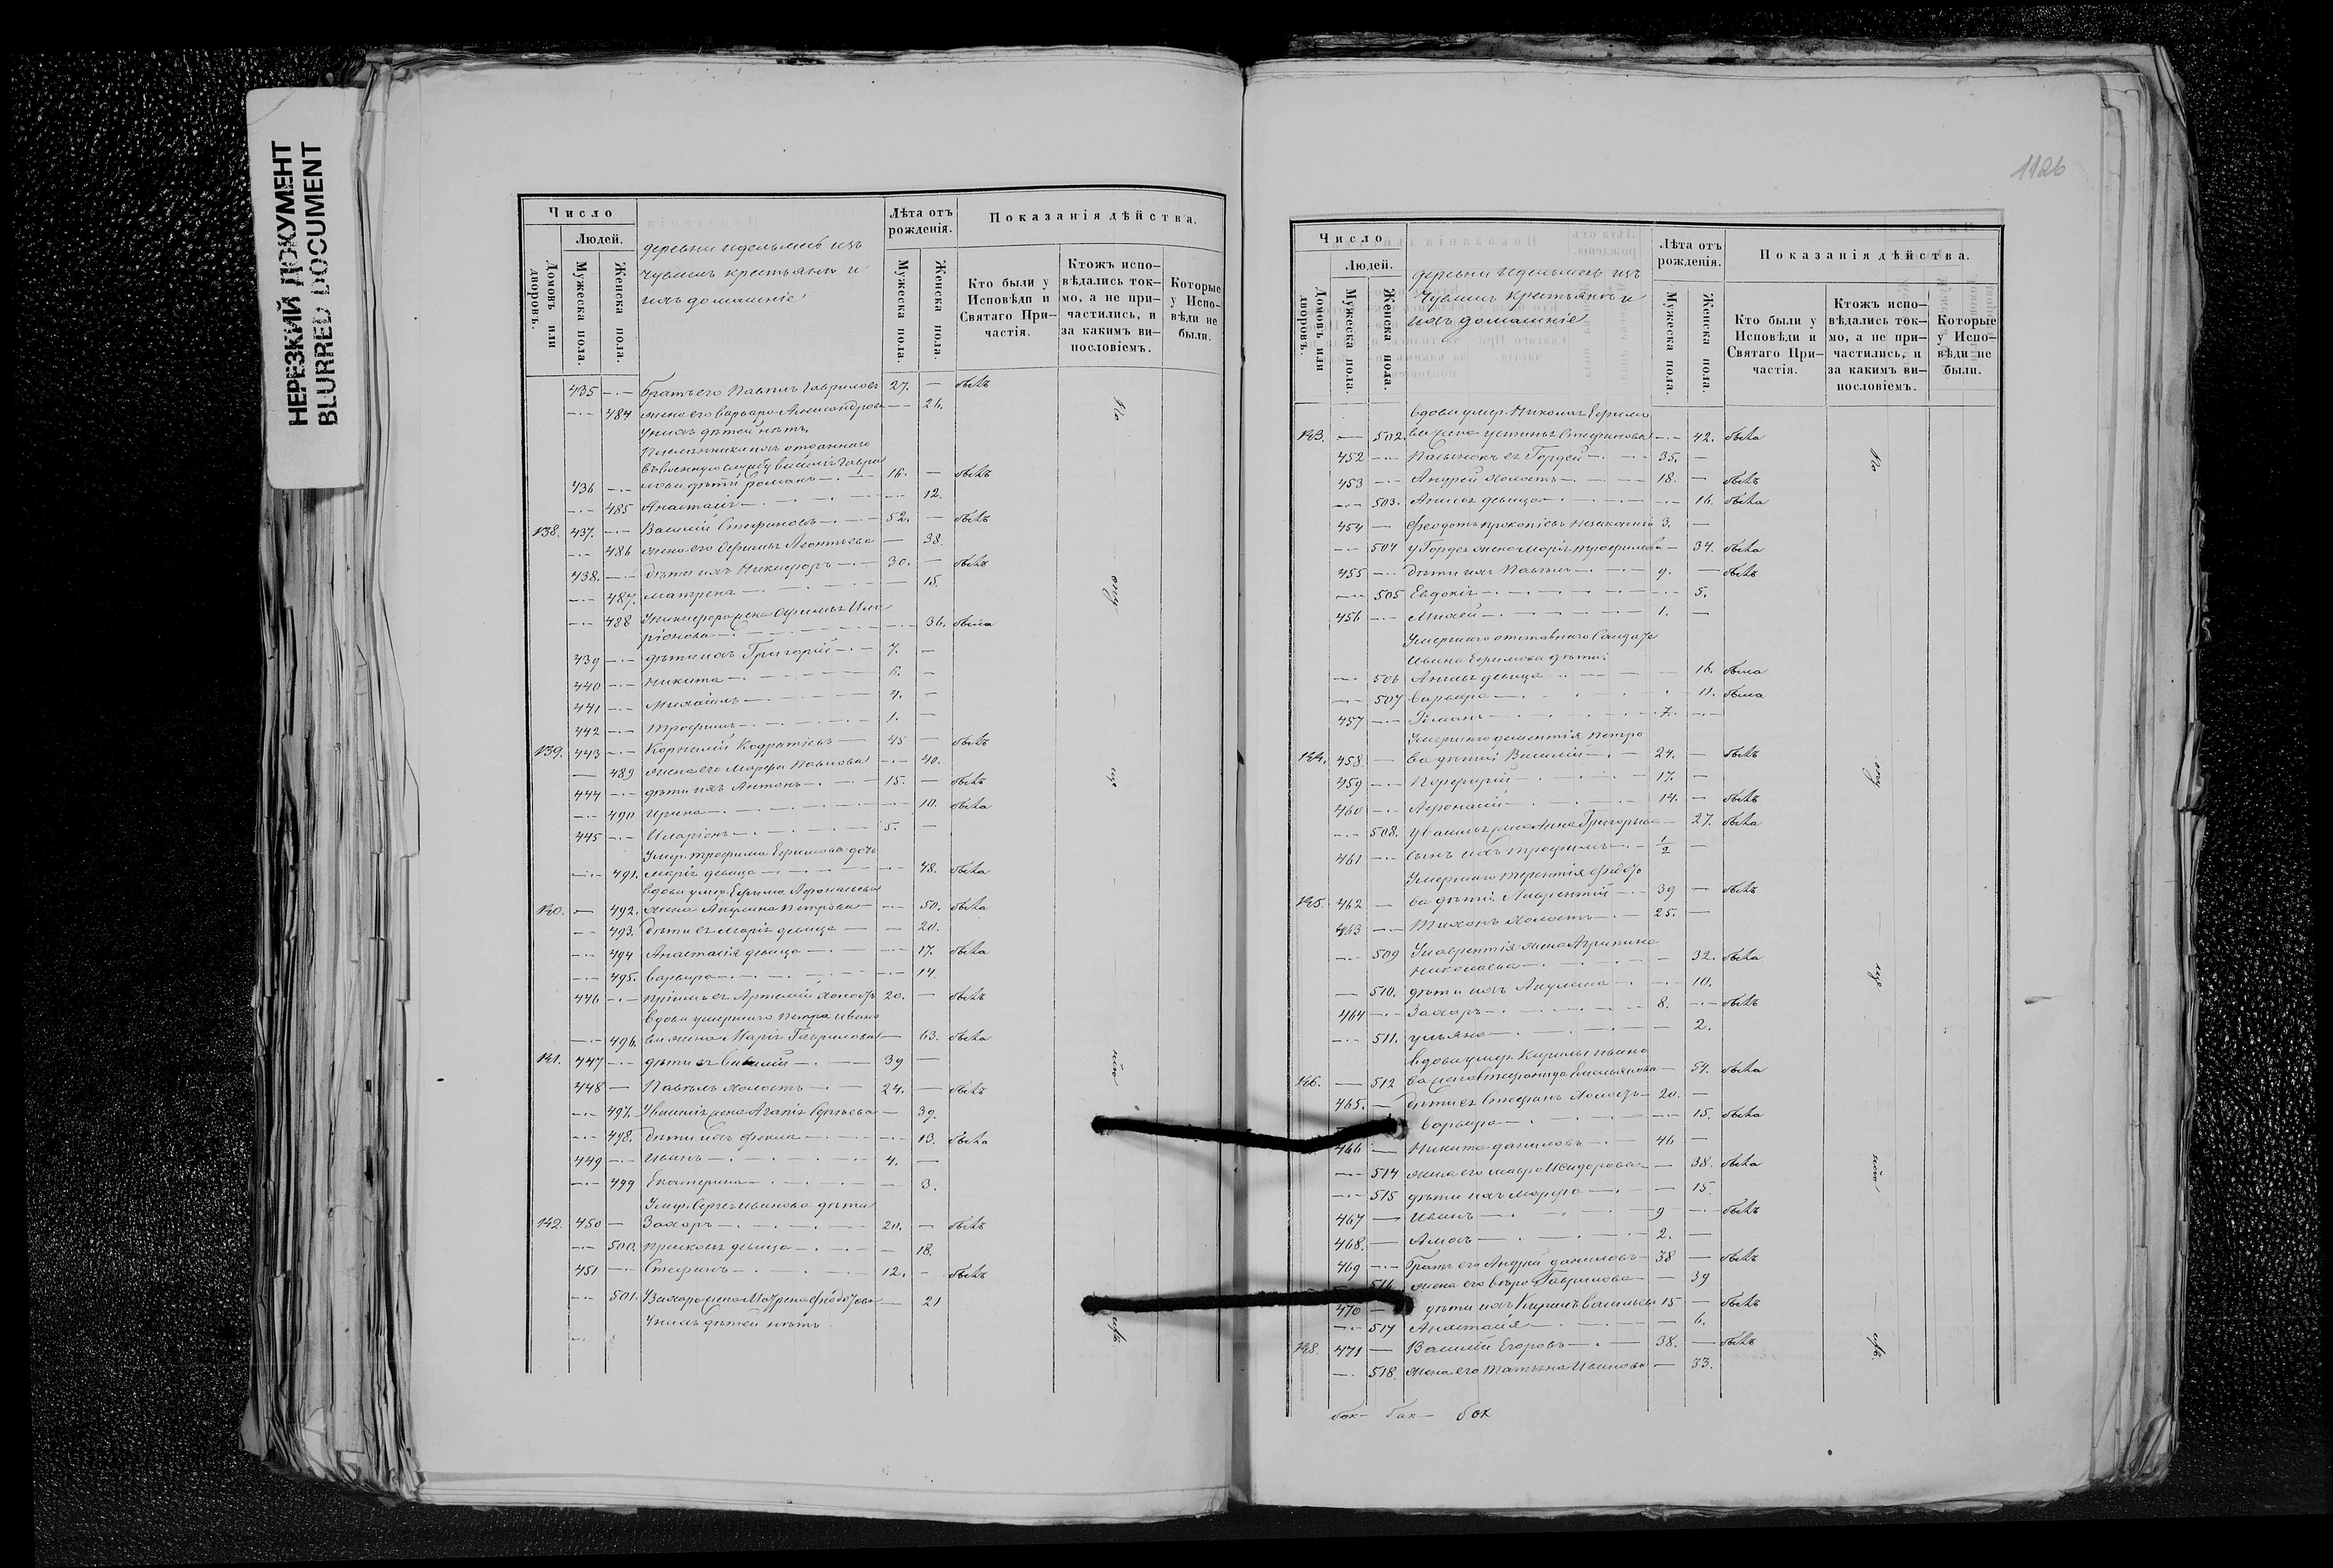 НЕРЕЗКИЙ ДОКУМЕНТ
BLURRED DOCUMENT
Число
Людей.
Домовъ или дворовъ.
Мужеска пола.
Женска пола.
деревни из
Чувашъ крестьянъ и
ихъ домашніе
Лѣта отъ рожденія.
Мужеска пола.
Женска пола.
Показанія дѣйства.
Кто были у Исповѣди и Святаго Причастія.
Ктожъ исповѣдались токмо, а не причастились, и за какимъ винословіемъ.
Которые у Исповѣди не были.
435 братъ его Павелъ Гавриловъ 27. — былъ
484 жена его Варвара Александрова — 26.
У нихъ дѣтей нѣтъ.
Племянники ихъ отданнаго
въ военную службу Василія Гаври
436 лова дѣти Романъ 16. — былъ
485 Анастасія — 12.
138. 437. Василій Стефановъ 52. — былъ
486 жена его Ефимія Леонтьева — 38.
438. дѣти ихъ Никифоръ 30. — былъ
487. Матрена — 15.
488 У Никифора жена Ефимія Ила
ріонова — 36. была
439 дѣти ихъ Григорій 7. —
440 Никита 6. —
441 Михаилъ 4. —
442 Трофимъ 1. —
139. 443 Корнилій Кодратіевъ 45 — былъ
489 жена его Марфа Павлова — 40.
444 дѣти ихъ Антонъ 15. — былъ
490 Ирина — 10. была
445 Иларіонъ 5. —
Умер. Трофима Ефимова дочь
491. Марія дѣвица — 48. была
вдова умер. Ефима Афонасьева
140. 492. жена Акулина Петрова — 50. была
493. дѣти ея Марія дѣвица — 20.
494 Анастасія дѣвица — 17. была
495. Варвара — 14.
446 пріимъ ея Артемій холостъ 20. — былъ
вдова умершаго Петра Ивано
496. ва жена Марія Гаврилова — 63. была
141. 447 дѣти ея Василій 39 —
448 Павелъ холостъ 24. — былъ
497. У Василія жена Агапія Сергѣева — 39.
498. дѣти ихъ Фекла — 13. была
449 Иванъ 4. —
499 Екатерина — 3.
Умер. Сергѣя Иванова дѣти
142. 450 Захаръ 20. — былъ
500. Прасковья дѣвица — 18.
451 Стефанъ 12. — былъ
501. У Захара жена Матрена Федотова — 21
У нихъ дѣтей нѣтъ
1126
Число
Людей.
Домовъ или дворовъ.
Мужеска пола.
Женска пола.
деревни изъ
Чувашъ крестьянъ и
ихъ домашніе
Лѣта отъ рожденія.
Мужеска пола.
Женска пола.
Показанія дѣйства.
Кто были у Исповѣди и Святаго Причастія.
Ктожъ исповѣдались токмо, а не причастились, и за какимъ винословіемъ.
Которые у Исповѣди не были.
вдова умер. Николая Ефимо
143. 502. ва жена Устинья Стефанова — 42. была
452 Пасынокъ ея Гордей 35. —
453 Андрей холостъ 18. — былъ
503. Анисья дѣвица — 16. была
454 Феодотъ Прокопіевъ незаконный 3. —
504 у Гордея жена Марія Трофимова — 34. была
455 дѣти ихъ Павелъ 9. — былъ
505 Евдокія — 5.
456 Михей 1. —
Умершаго отставнаго Солдата
Ивана Ефимова дѣти:
506 Анисья дѣвица — 16. была
507 Варвара — 11. была
457 Романъ 7. —
Умершаго Дементія Петро
144. 458. ва дѣти Василій 24. — былъ
459 Порфирій 17. —
460 Афонасій 14. — былъ
508. у Василья жена Анна Григорьева — 27. была
461 сынъ ихъ Трофимъ 1/2 —
Умершаго Терентія Федото
145. 462 ва дѣти: Лаврентій 39 — былъ
463 Тихонъ холостъ 25. —
509 У Лаврентія жена Агрипина
Николаева — 32. была
510. дѣти ихъ Акулина — 10.
464 Захаръ 8. — былъ
511. Ульяна — 2.
вдова умер. Кирилы Ивано
146. 512 ва жена Стефанида Емельянова — 54. была
465. дѣти ея Стефанъ холостъ 20. —
Варвара — 15. была
466 Никита Даниловъ 46 —
514 жена его Мавра Исидорова — 38. была
515 дѣти ихъ Марфа — 15.
467 Иванъ 9 — былъ
468. Амосъ 2. —
469 братъ его Андрей Даниловъ 38 — былъ
516 жена его Вѣра Гаврилова — 39
470 дѣти ихъ Кирилъ Васильевъ 15 — былъ
517 Анастасія — 6.
148. 471 Василій Егоровъ 38. — былъ
518. жена его Татьяна Иванова — 33.